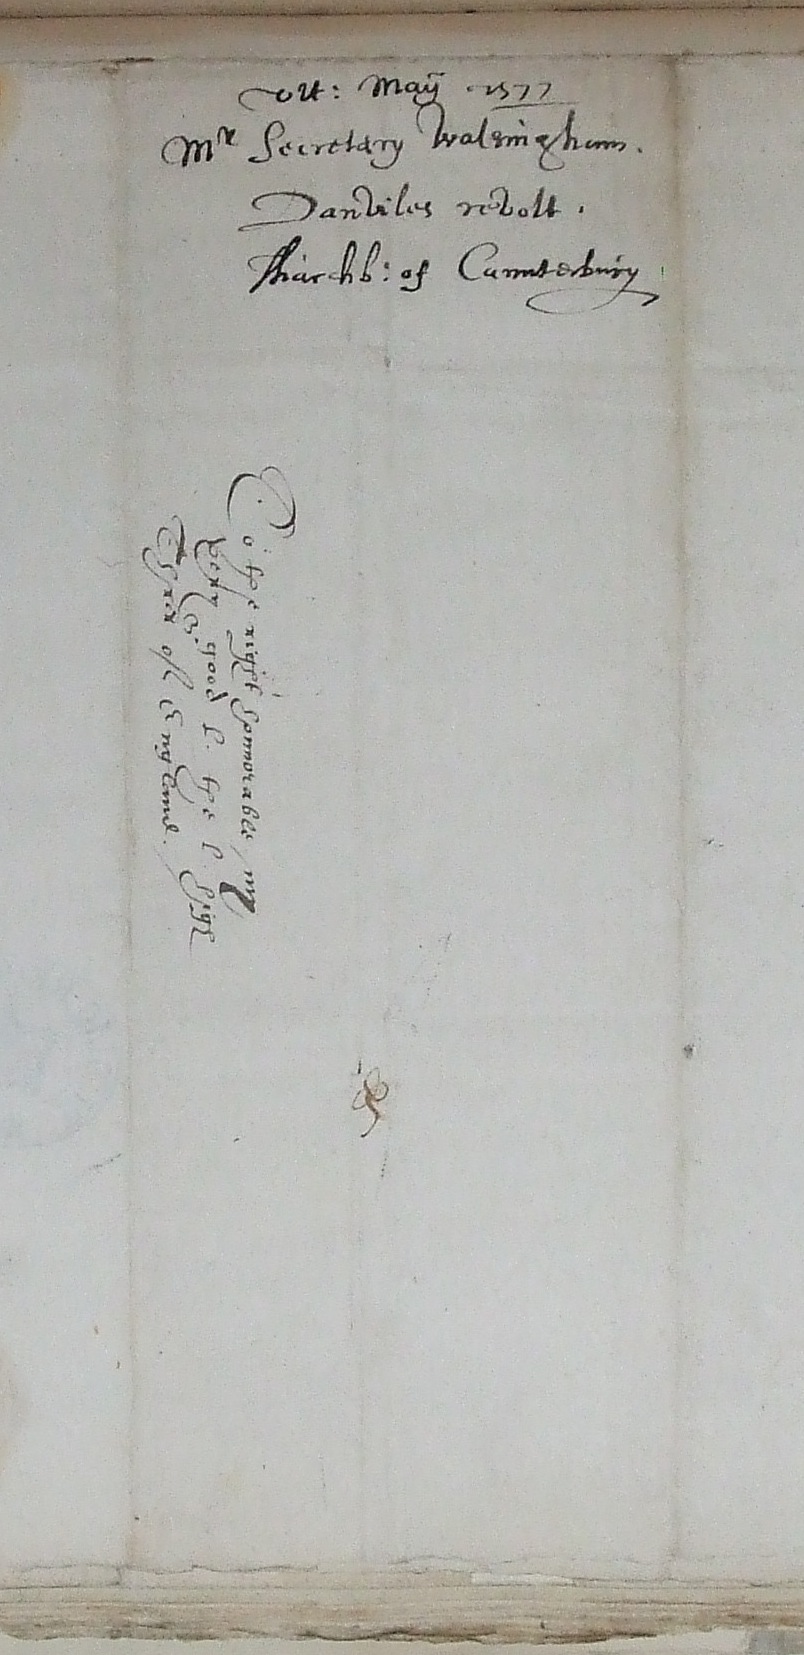 ult: Maÿ .1577
Mr Secretary Walsingham.
Danviles revolt.
Tharchb: of Cannterbury
To the right honnorable my
very good L. the L. highe
Th[resor]er of England.